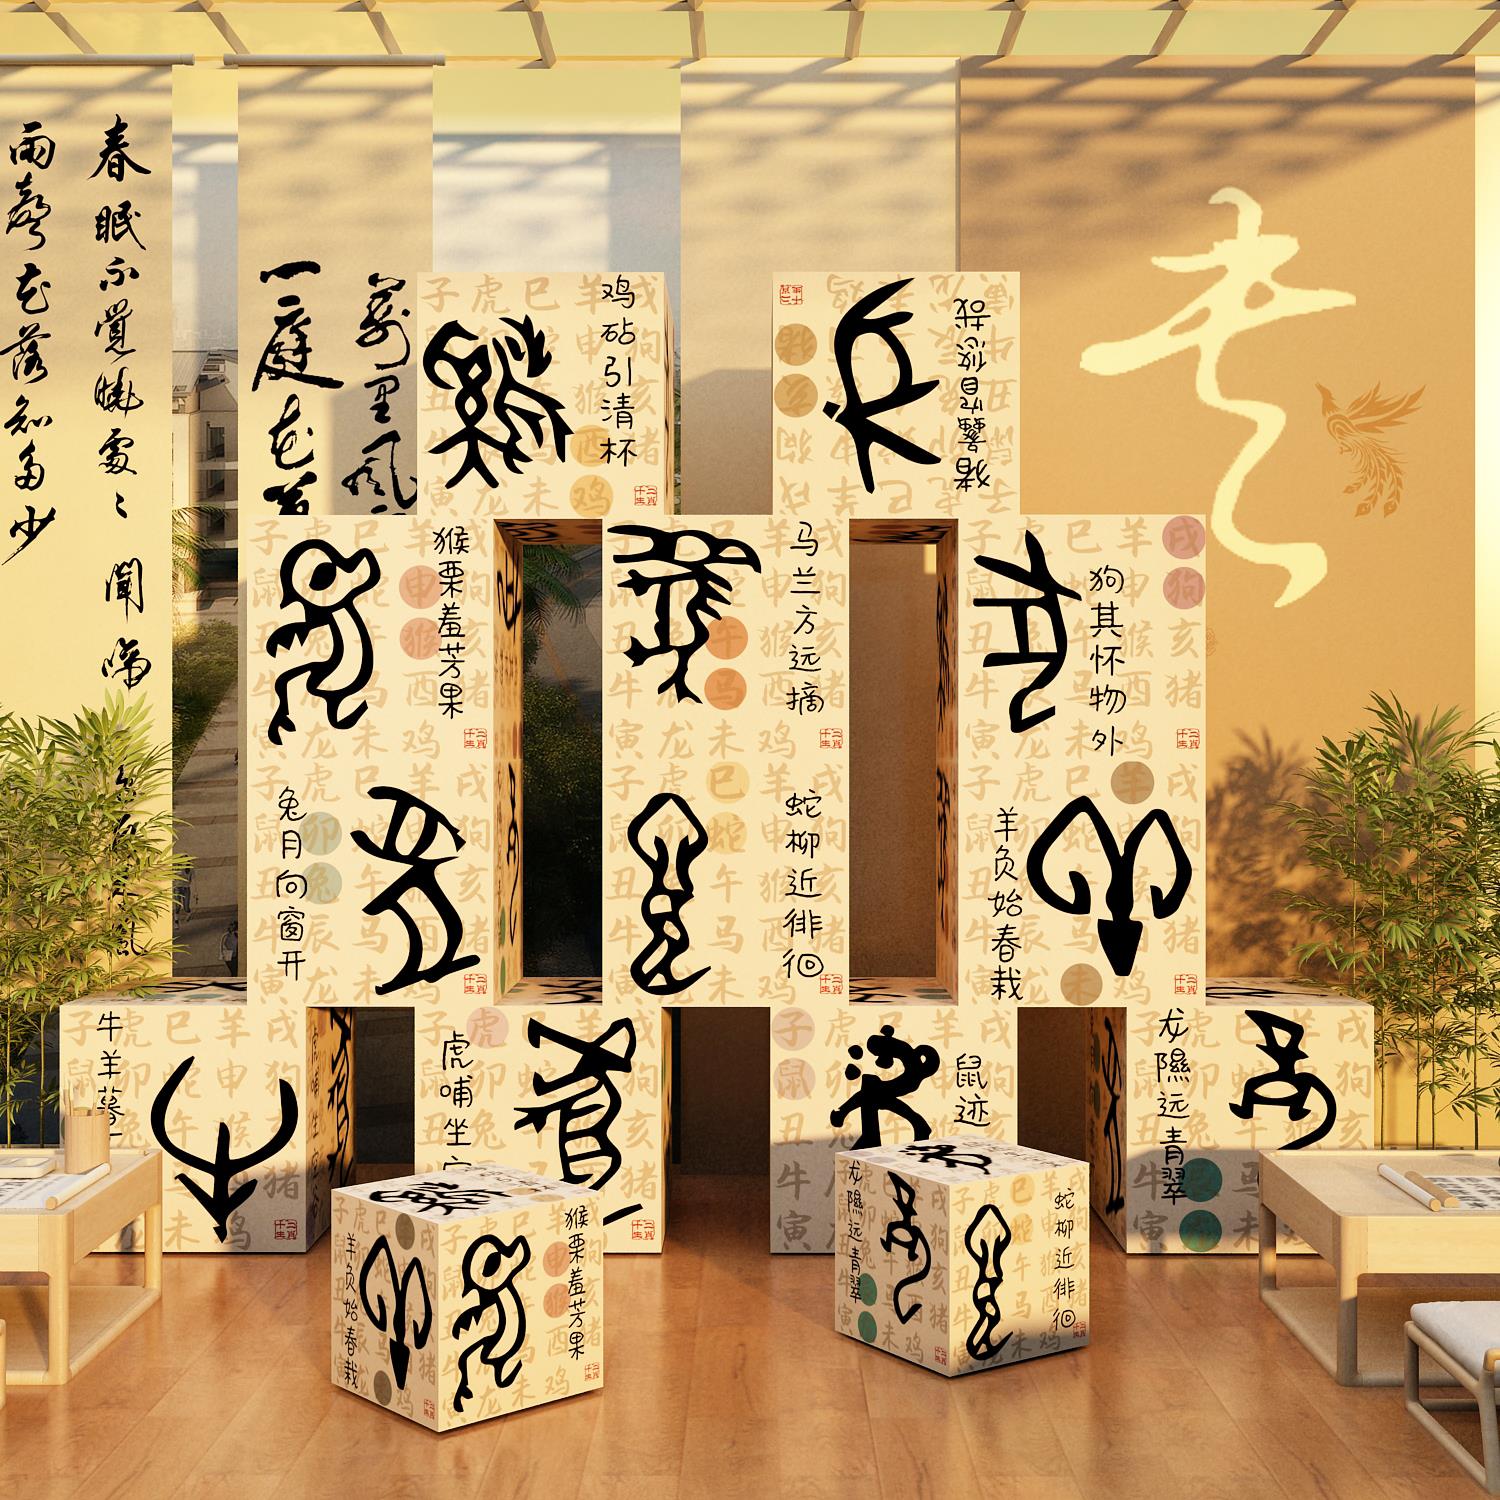 春眠不覺曉處〻聞啼
雨聲花落知多少
萬里風
一庭花
春
鸡砧引清杯
猪蠡窅悠哉
猴栗羞芳果
马兰方远摘
狗其怀物外
兔月向窗开
蛇柳近徘徊
羊负始春栽
牛羊暮
虎哺坐
鼠迹
龙隰远青翠
羊负始春栽
猴栗羞芳果
龙隰远青翠
蛇柳近徘徊
子虎巳羊戌
鼠卯蛇申狗
丑兔午猴亥
牛辰马酉猪
寅龙未鸡